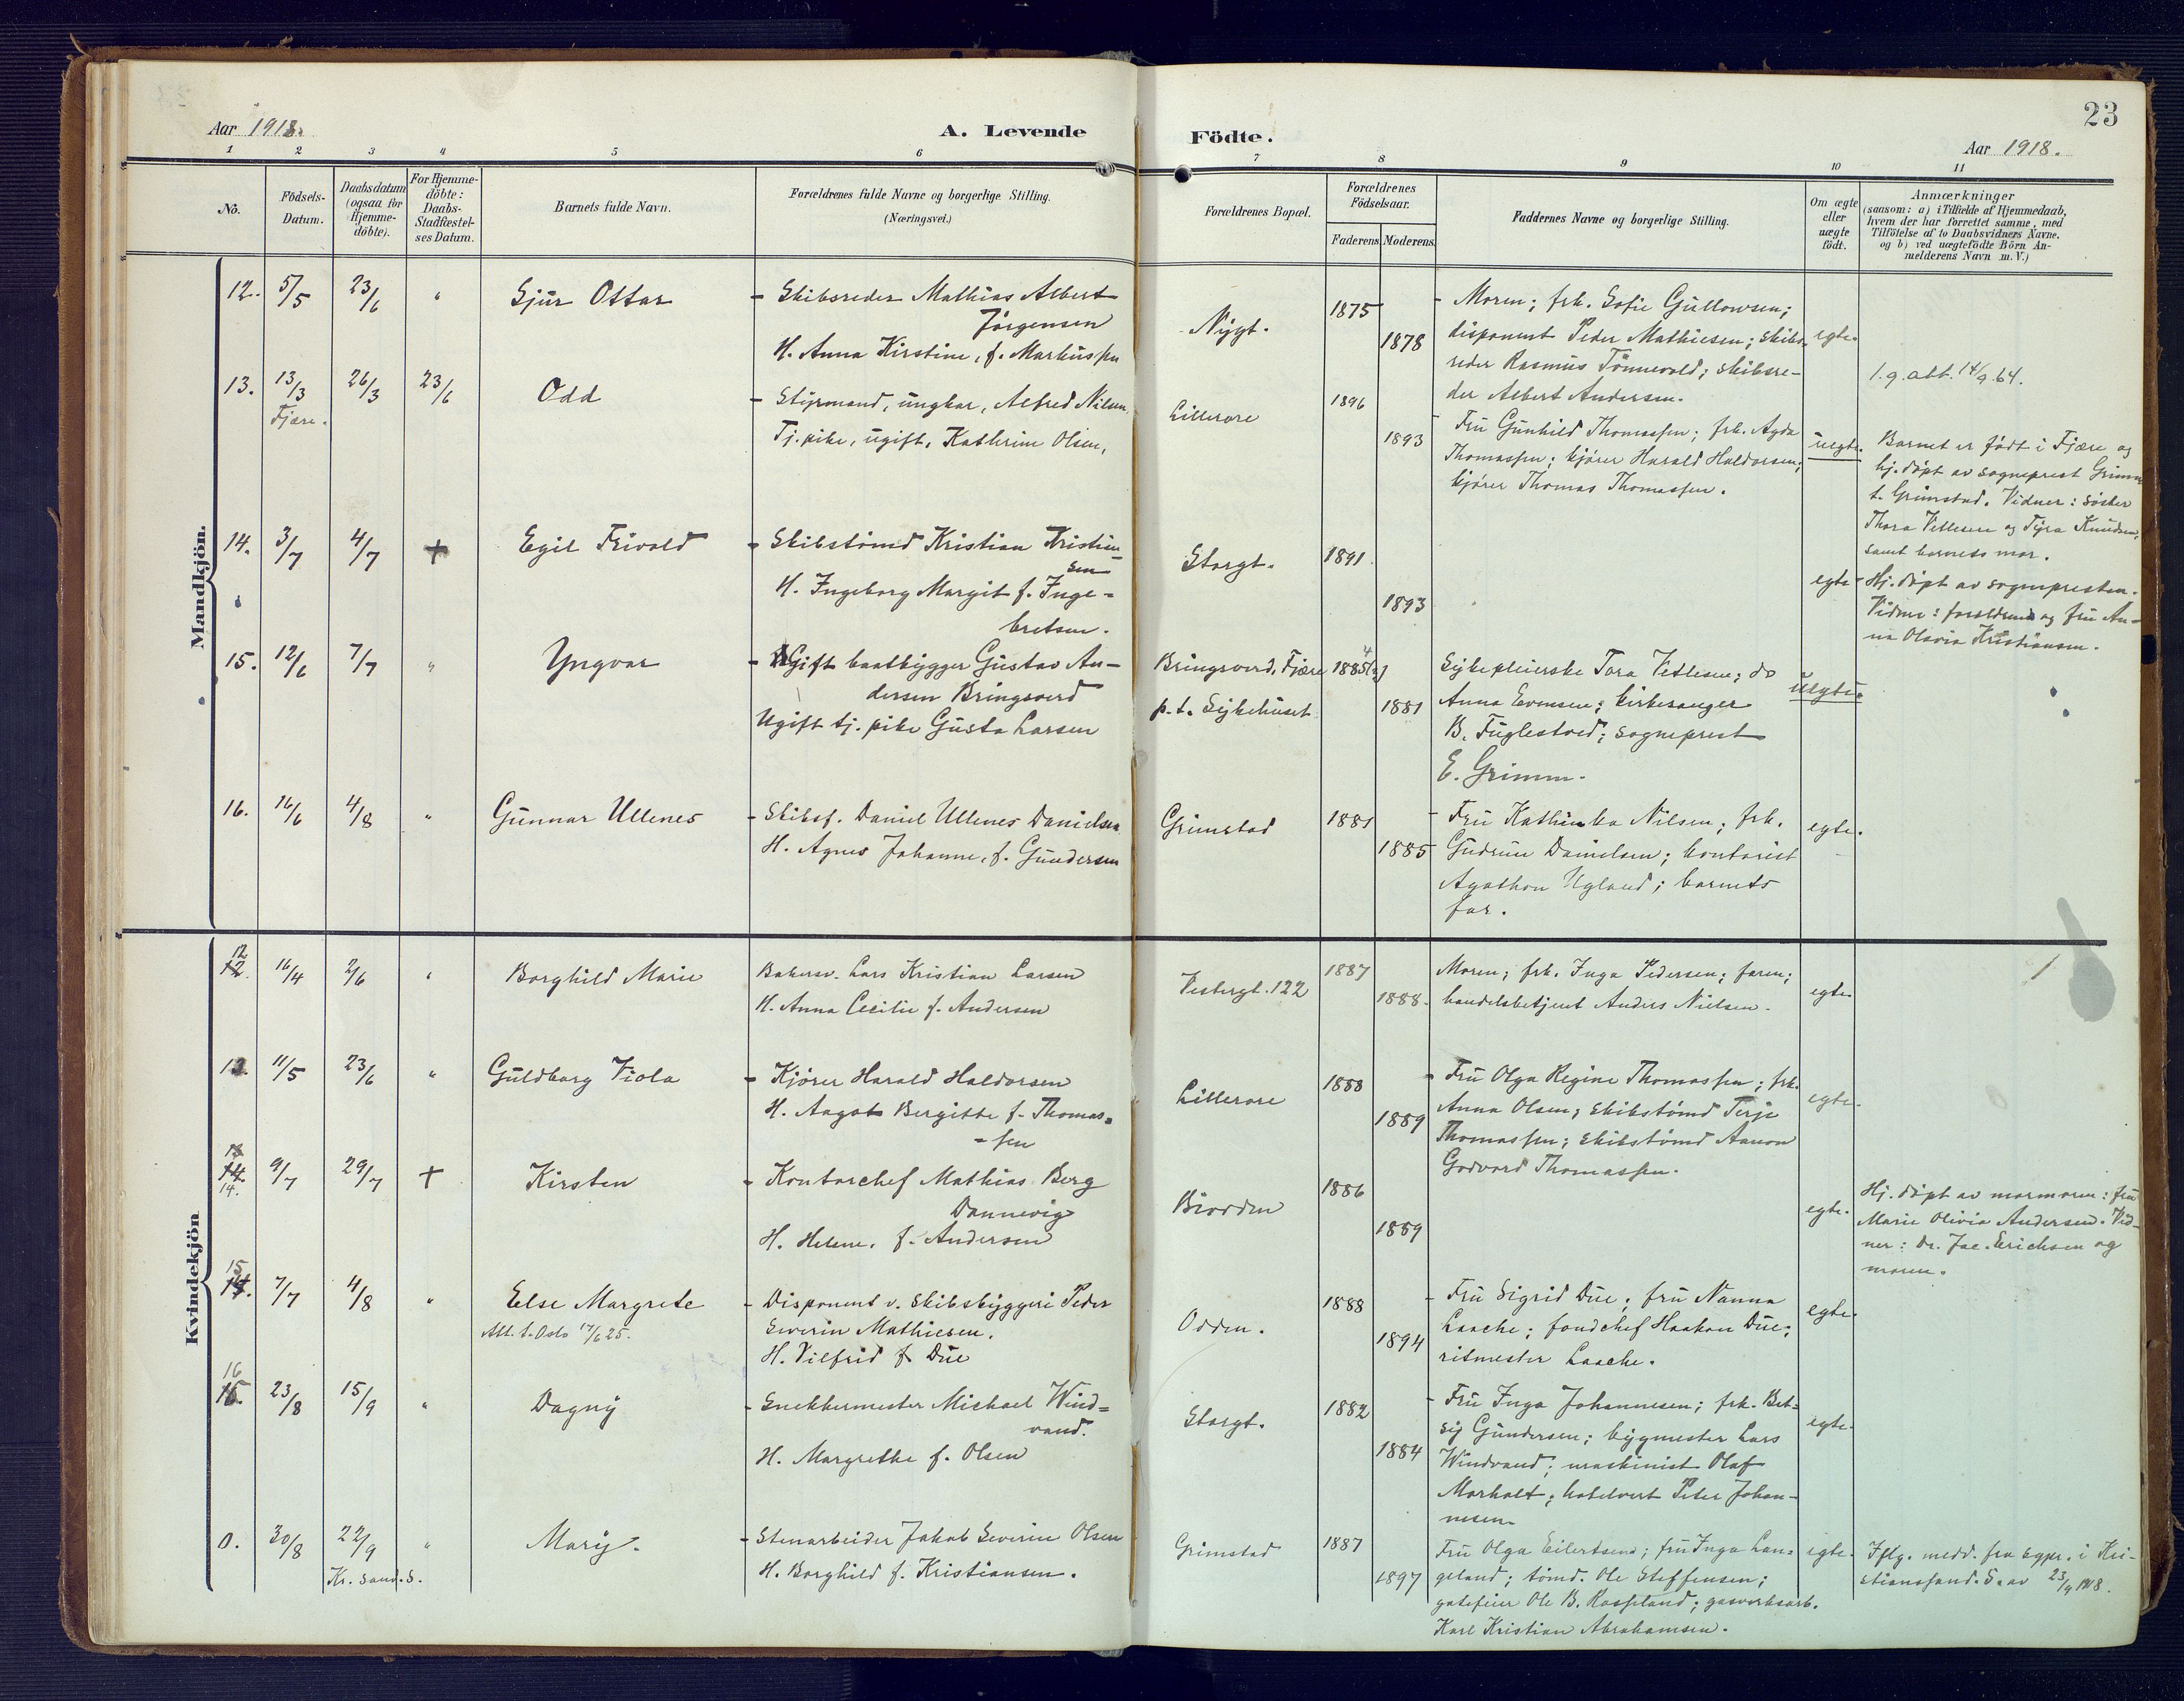 23
Aar 1918.
A. Levende
Födte.
Aar 1918.
1 2 3 4 5 6 7 8 9 10 11
No.
Födsels-
Datum.
Daabsdatum
(ogsaa for
Hjemme-
döbte).
For Hjemme-
döbte:
Daabs-
Stadfæstel-
ses Datum.
Barnets fulde Navn.
Forældrenes fulde Navne og borgerlige Stilling.
(Næringsvei.)
Forældrenes Bopæl.
Forældrenes
Födselsaar.
Faderens. Moderens.
Faddernes Navne og borgerlige Stilling.
Om ægte
eller
uægte
födt.
Anmærkninger
(saasom: a) i Tilfælde af Hjemmedaab,
hvem der har forrettet samme, med
Tilföielse af to Daabsvidners Navne.
og b) ved uægtefödte Börn An-
melderens Navn m. V.)
Mandkjön.
12. 5/5 23/6 " Sjur Ottar
- Skibsreder Mathias Albert
Jörgensen
H. Anna Kirstine, f. Markussen
Nygt.
1875
1878
- Moren; frk. Sofie Gullowsen;
disponent Peder Mathiesen; skibs-
reder Rasmus Tönnevold; skibsre-
der Albert Andersen.
egte.
1.g. att. 14/9.64.
13. 13/3 26/3 23/6 Odd
Fjære.
- Styrmand, ungkar, Alfred Nilsen.
Tj. pike, ugift, Kathrine Olsen,
Lillerore
1896
1893
- Fru Gunhild Thomassen; frk. Agda
Thomassen; kjörer Harald Haldorsen;
kjörer Thomas Thomassen.
uegte.
Barnet er födt i Fjære og
hj. döpt av sogneprest Grimm
t. Grimstad. Vidner: söster
Thora Vetlesen og Tyra Knudsen,
samt barnets mor.
14. 3/7 4/7 + Egil Trivold
- Skibstömd Kristian Kristian-
sen
H. Ingeborg Margit f. Inge-
bretsen.
Storgt.
1891
1893
egte-
Hj. döpt av sognepresten.
Vidner: forældrene og fru An-
na Olavia Kristiansen.
15. 12/6 7/7 " Yngvar
- Gift baatbygger Gustav An-
dersen Bringsverd
Ugift tj. pike Gusta Larsen
Bringsverd, Fjære
p.t. Sykehuset
1885
1881
Sykepleierske Tora Vetlesen; do
Anna Evensen; kirkesanger
B. Fuglestved; sogneprest
E. Grimm.
uegte.
16. 16/6 4/8 " Gunnar Ullenes
- Skibsf. Daniel Ullenes Danielsen
H. Agnes Johanne, f. Gundersen
Grimstad
1881
1885
- Fru Kathinka Nilsen; frk.
Gudrun Danielsen; kontorist
Agathon Ugland; barnets
far.
egte.
Kvindekjön
12. 16/4 2/6 " Borghild Marie
Bakersv. Lars Kristian Larsen
H. Anna Cecilie f. Andersen
Vestergt. 122
1887
1888.
Moren; frk. Inga Pedersen; faren;
handelsbetjent Anders Nielsen.
egte.
13. 11/5 23/6 " Guldborg Viola
- Kjörer Harald Haldorsen
H. Aagot Bergitte f. Thomas-
-sen
Lillerore
1888
1889
- Fru Olga Regine Thomassen; frk.
Anna Olsen; skibstömd Terje
Thomassen; skibstömd Aanon
Godvard Thomassen.
egte.
14. 9/7 29/7 + Kirsten
- Kontorchef Mathias Berg
Dannevig
H. Helene, f. Andersen
Biodden
1886
1889
egte.
Hj. döpt av mormoren: fru
Marie Olivia Andersen. Vid-
ner: Dr. Jac. Erichsen og
moren.
15. 7/7 4/8 " Else Margrete
Att. t. Oslo 17/6 25.
- Disponent v. skibsbyggeri Peder
Severin Mathiesen.
H. Vilfrid f Due
Odden.
1888
1894
- Fru Sigrid Due; fru Nanna
Laache; fondchef Haakon Due;
ritmester Laache.
egte.
16 23/8 15/9 " Dagny
- Snekkermester Michael Wind-
vand.
H. Margrethe f. Olsen
Storgt.
1882
1884
- Fru Inga Johannesen; frk. Bet-
sy Gundersen; bygmester Lars
Windvand; maskinist Olaf
Morholt; hotelvert Peter Johan-
nesen.
egte.
0. 30/8 22/9 " Mary.
Kr. sand. S.
- Stenarbeider Jakob Severin Olsen
H. Borghild f. Kristiansen.
Grimstad
1887
1897
Fru Olga Eilertsen; fru Inga Lan-
geland; tömd. Ole Steffensen;
gatefeier Ole B. Rosseland; gasverksarb.
Karl Kristian Abrahamsen.
egte.
Iflg. medd. fra sgpr. i Kri-
stianssand. S. av 23/9 1918.